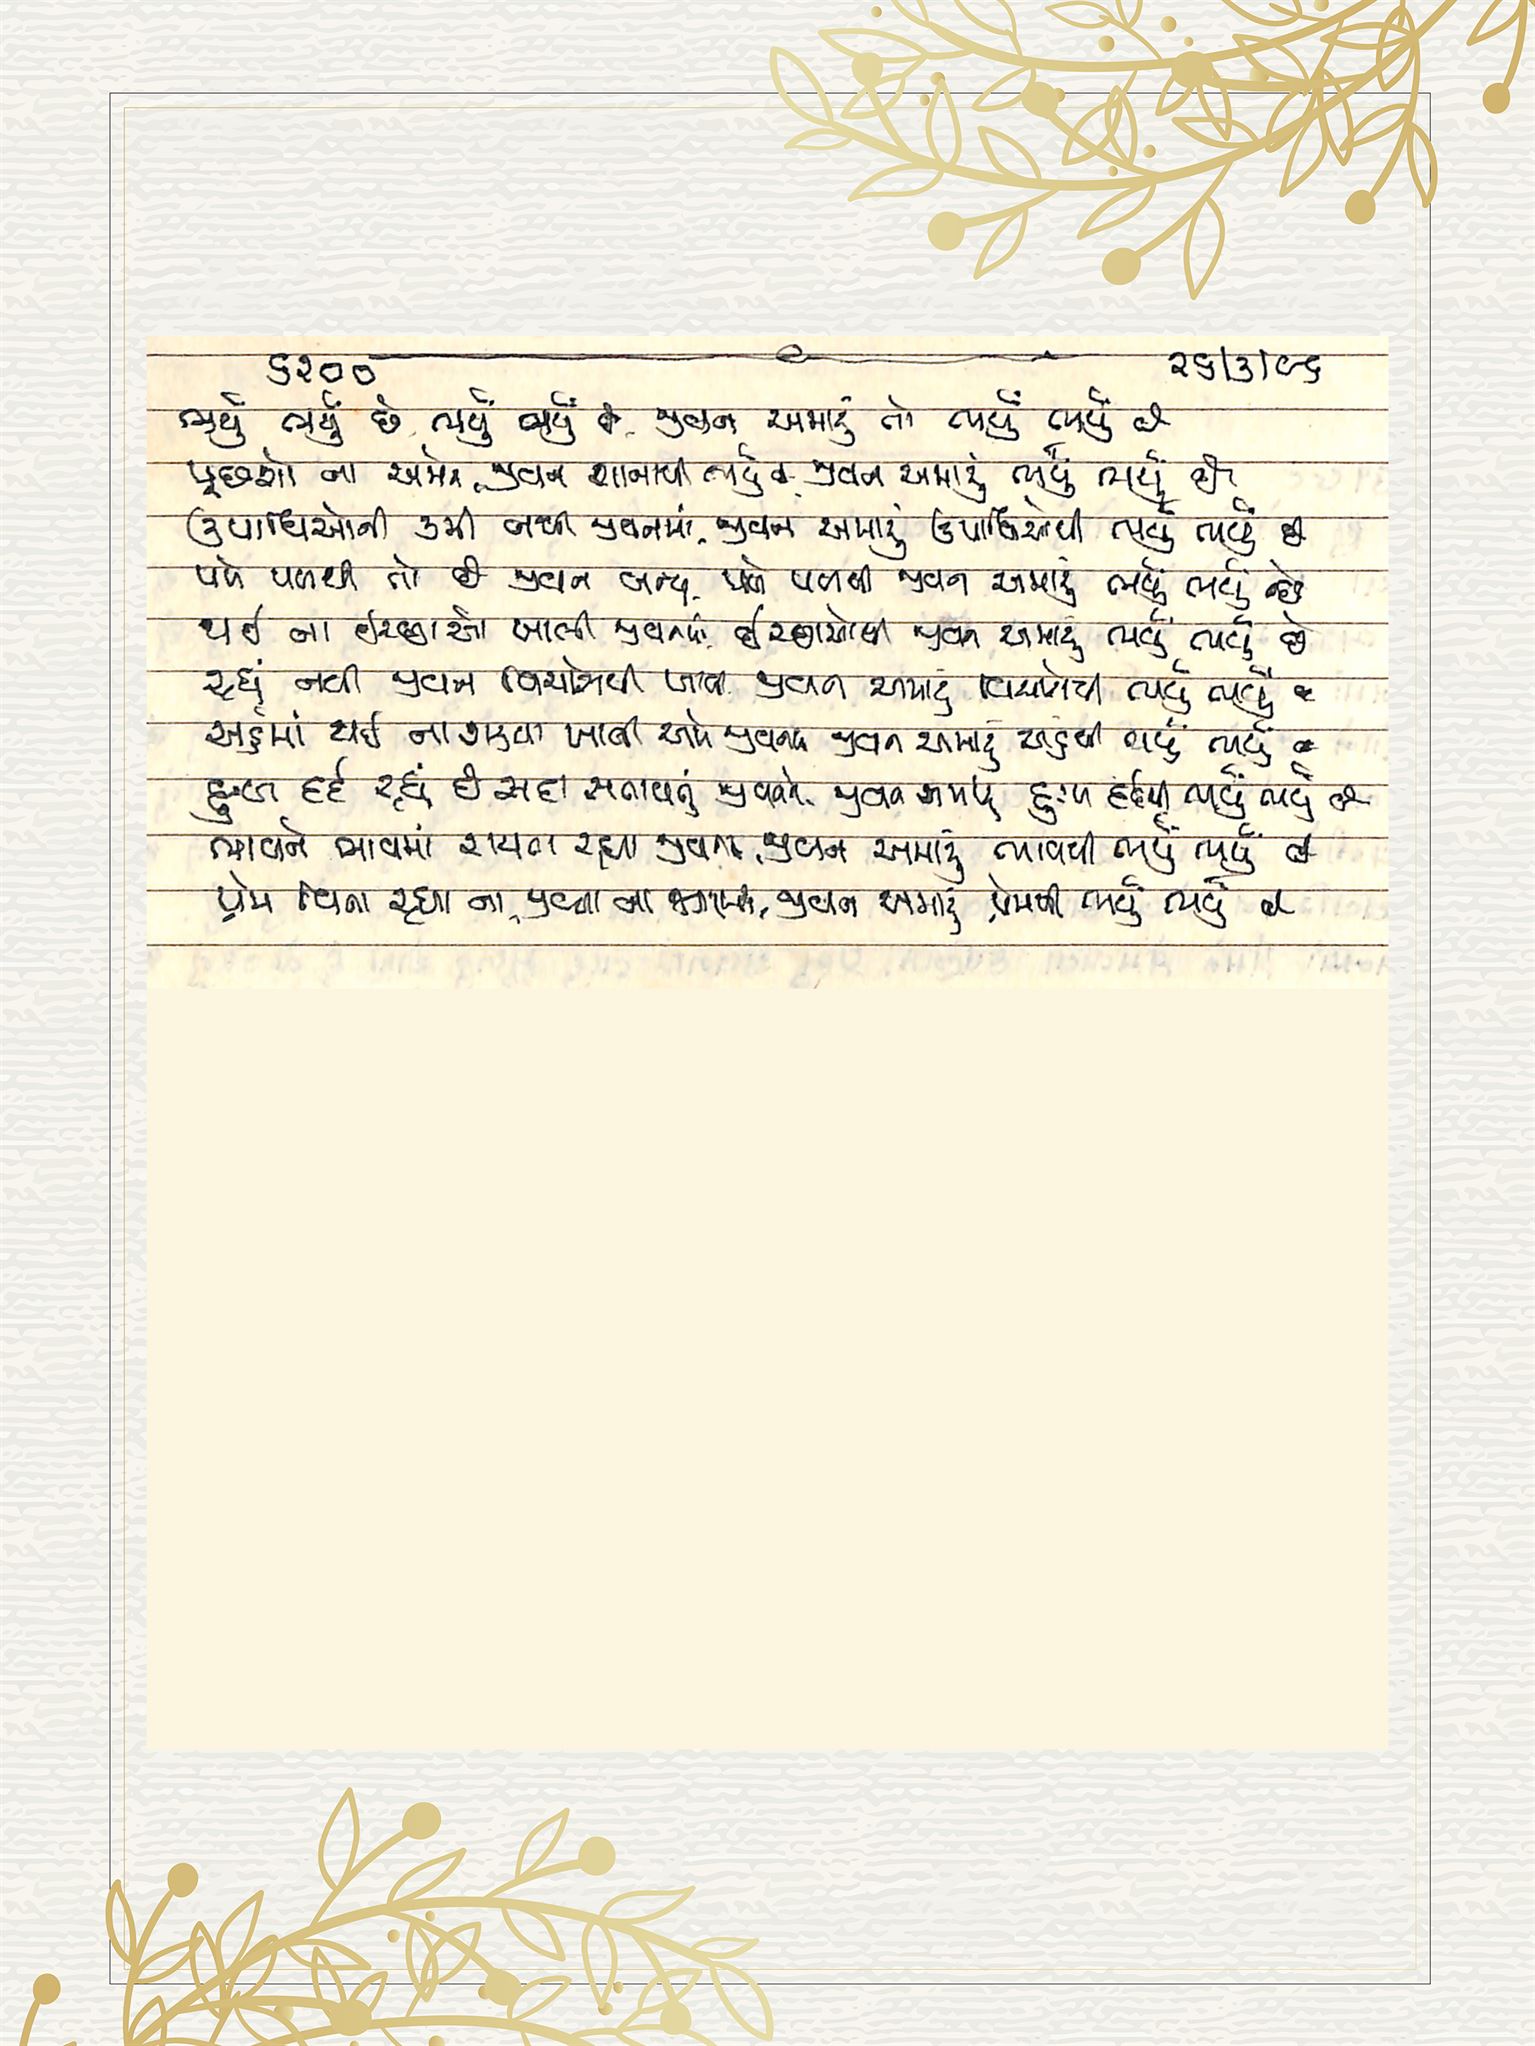 ૬૨૦૦ ૨૬/૩/૯૬
ભર્યું ભર્યું છે, ભર્યું ભર્યું છે, જીવન અમારું તો ભર્યું ભર્યું છે
પૂછશો ના અમને, જીવન શાનાથી ભર્યું છે, જીવન અમારું ભર્યું ભર્યું છે
ઉપાધિઓની કમી નથી જીવનમાં, જીવન અમારું ઉપાધિઓથી ભર્યું ભર્યું છે
પળે પળથી તો છે જીવન બન્યું, પળે પળથી જીવન અમારું ભર્યું ભર્યું છે
થઈ ના ઈચ્છાઓ ખાલી જીવનમાં, ઈચ્છાઓથી જીવન અમારું ભર્યું ભર્યું છે
રહ્યું નથી જીવન વિચારોથી ખાલી, જીવન અમારું વિચારોથી ભર્યું ભર્યું છે
અહંમાં થઈ ના શક્યા ખાલી અમે જીવનમાં જીવન અમારું અહંથી ભર્યું ભર્યું છે
દુઃખ દર્દ રહ્યું છે સદા સતાવતું જીવનને, જીવન અમારું દુઃખ દર્દથી ભર્યું ભર્યું છે
ભાવને ભાવમાં રાચતા રહ્યા જીવનમાં, જીવન અમારું ભાવથી ભર્યું ભર્યું છે
પ્રેમ વિના રહ્યા ના, જીવ્યા ના જગમાં, જીવન અમારું પ્રેમથી ભર્યું ભર્યું છે